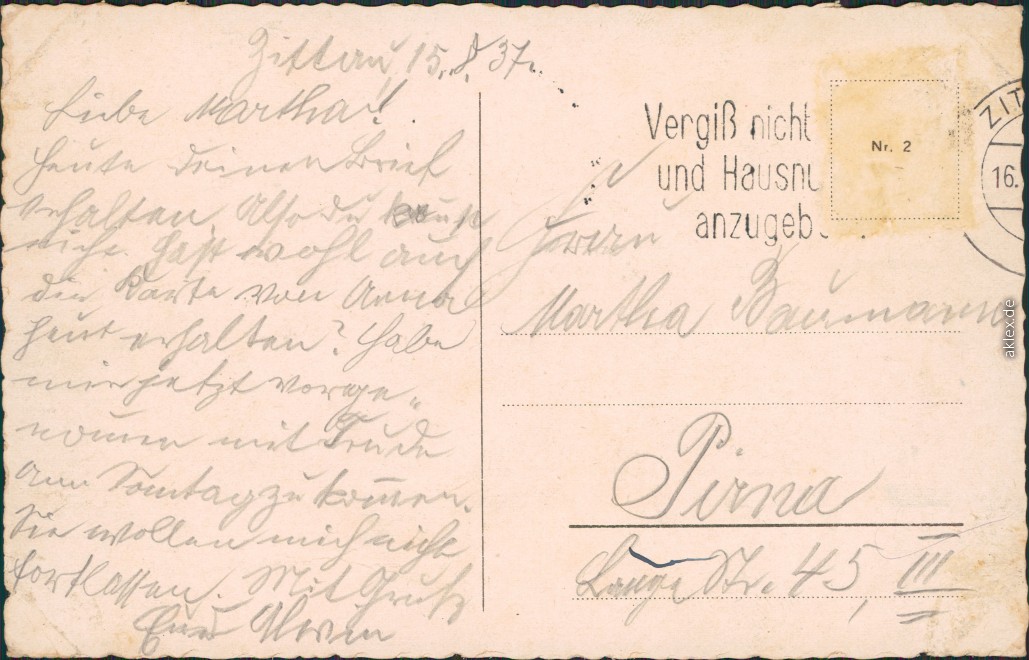 Zittau, 15.8.37.
Liebe Martha!
Heute deinen Brief
erhalten. Also du
nicht. Hast wohl auch
die Karte von Anna
heut erhalten? Habe
mir jetzt vorge-
nomen mit Trude
am Sonntag zu komen.
Sie wollen mich nicht
fortlassen. Mit Gruß
Erwin
Vergiß nicht
und Hausnu
anzugeb
Nr. 2
ZIT
16.
Martha Baumann
Pirna
Lange Str. 45, III
aklex.de